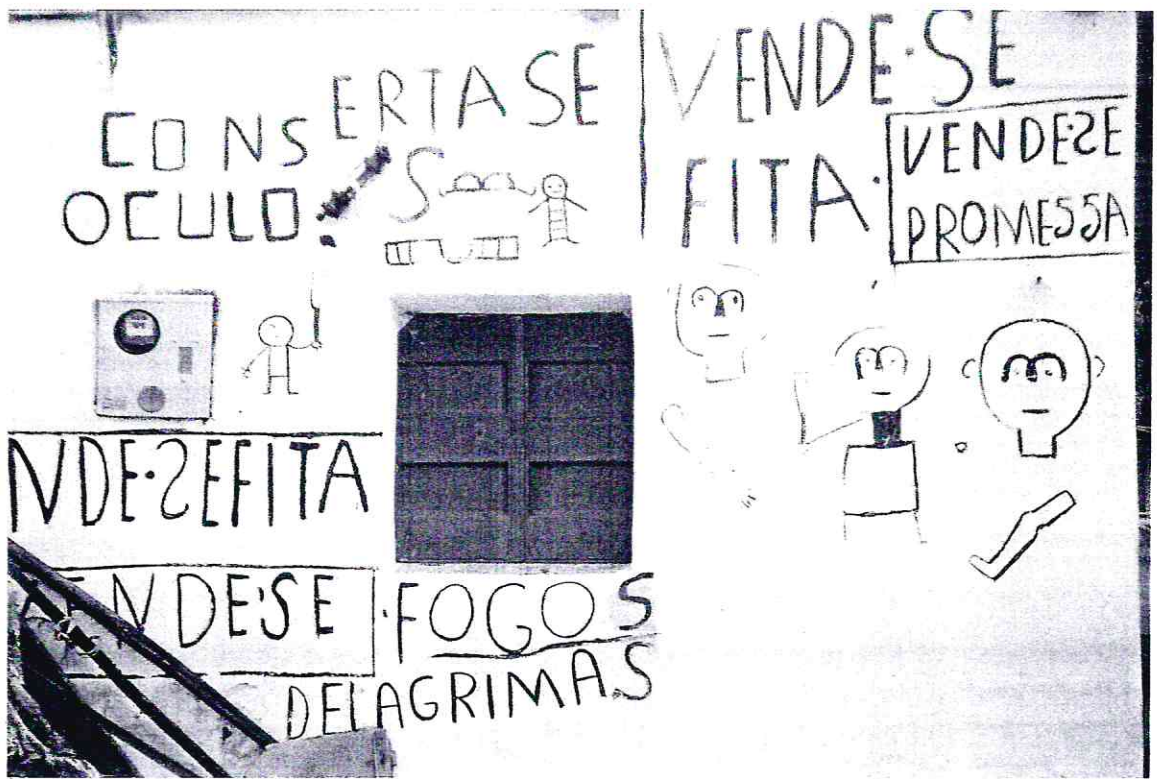 CONSERTASE
OCULOS
VENDE·SE
FITA·
VENDESE
PROMESSA
NDE·SEFITA
ENDE·SE
·FOGOS
DELAGRIMA.S